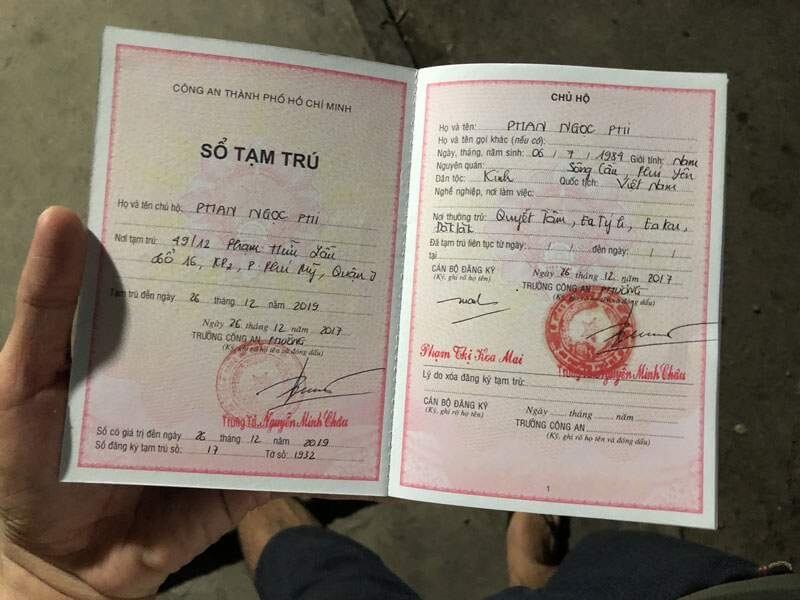 CÔNG AN THÀNH PHỐ HỒ CHÍ MINH
SỔ TẠM TRÚ
Họ và tên chủ hộ: PHAN NGỌC PHI
Nơi tạm trú: 49/12 Phạm Hữu Lầu
tổ 16, KP2, P. Phú Mỹ, Quận 7
Tạm trú đến ngày 26 tháng 12 năm 2019
Ngày 26 tháng 12 năm 2017
TRƯỞNG CÔNG AN PHƯỜNG
(Ký, ghi rõ họ tên và đóng dấu)
Trung Tá Nguyễn Minh Châu
Sổ có giá trị đến ngày 26 tháng 12 năm 2019
Số đăng ký tạm trú số: 17 Tờ số: 1932
CHỦ HỘ
Họ và tên: PHAN NGỌC PHI
Họ và tên gọi khác (nếu có):
Ngày, tháng, năm sinh: 06 / 7 / 1984 Giới tính: Nam
Nguyên quán: Sông Cầu, Phú Yên
Dân tộc: Kinh Quốc tịch: Việt Nam
Nghề nghiệp, nơi làm việc:
Nơi thường trú: Quyết Tâm, Ea Týh, Ea Kar,
Đăk Lăk
Đã tạm trú liên tục từ ngày: / / đến ngày: / /
CÁN BỘ ĐĂNG KÝ
(Ký, ghi rõ họ tên)
Ngày 26 tháng 12 năm 2017
TRƯỞNG CÔNG AN PHƯỜNG
(Ký, ghi rõ họ tên và đóng dấu)
Phạm Thị Hoa Mai
Trung Tá Nguyễn Minh Châu
Lý do xóa đăng ký tạm trú:
CÁN BỘ ĐĂNG KÝ
(Ký, ghi rõ họ tên)
Ngày ..... tháng ..... năm .....
TRƯỞNG CÔNG AN
(Ký, ghi rõ họ tên và đóng dấu)
1